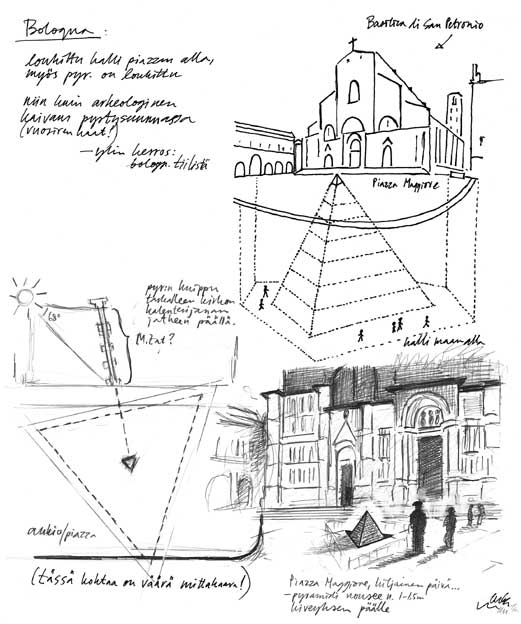 Bologna:
louhittu halli piazzan alla,
myös pyr. on louhittu
niin kuin arkeologinen
kaivaus pystysuunnassa
(vuosirenkaat!)
– ylin kerros:
bologn. tiilistä
Basilica di San Petronio
Piazza Maggiore
halli maan alla
pyrin huippu
tarkalleen kirkon
kalenterijanan
jatkeen päällä.
M.Zat?
68°
aukio/piazza
(tässä kohtaa on väärä mittakaava!)
Piazza Maggiore, hiljainen päivä...
– pyramidi nousee n. 1–1.5m
kiveyksen päälle